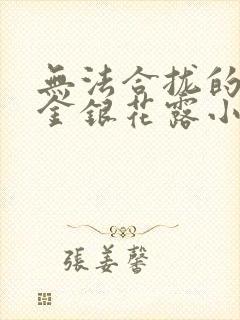 無法合拢的
金银花露小
張姜馨